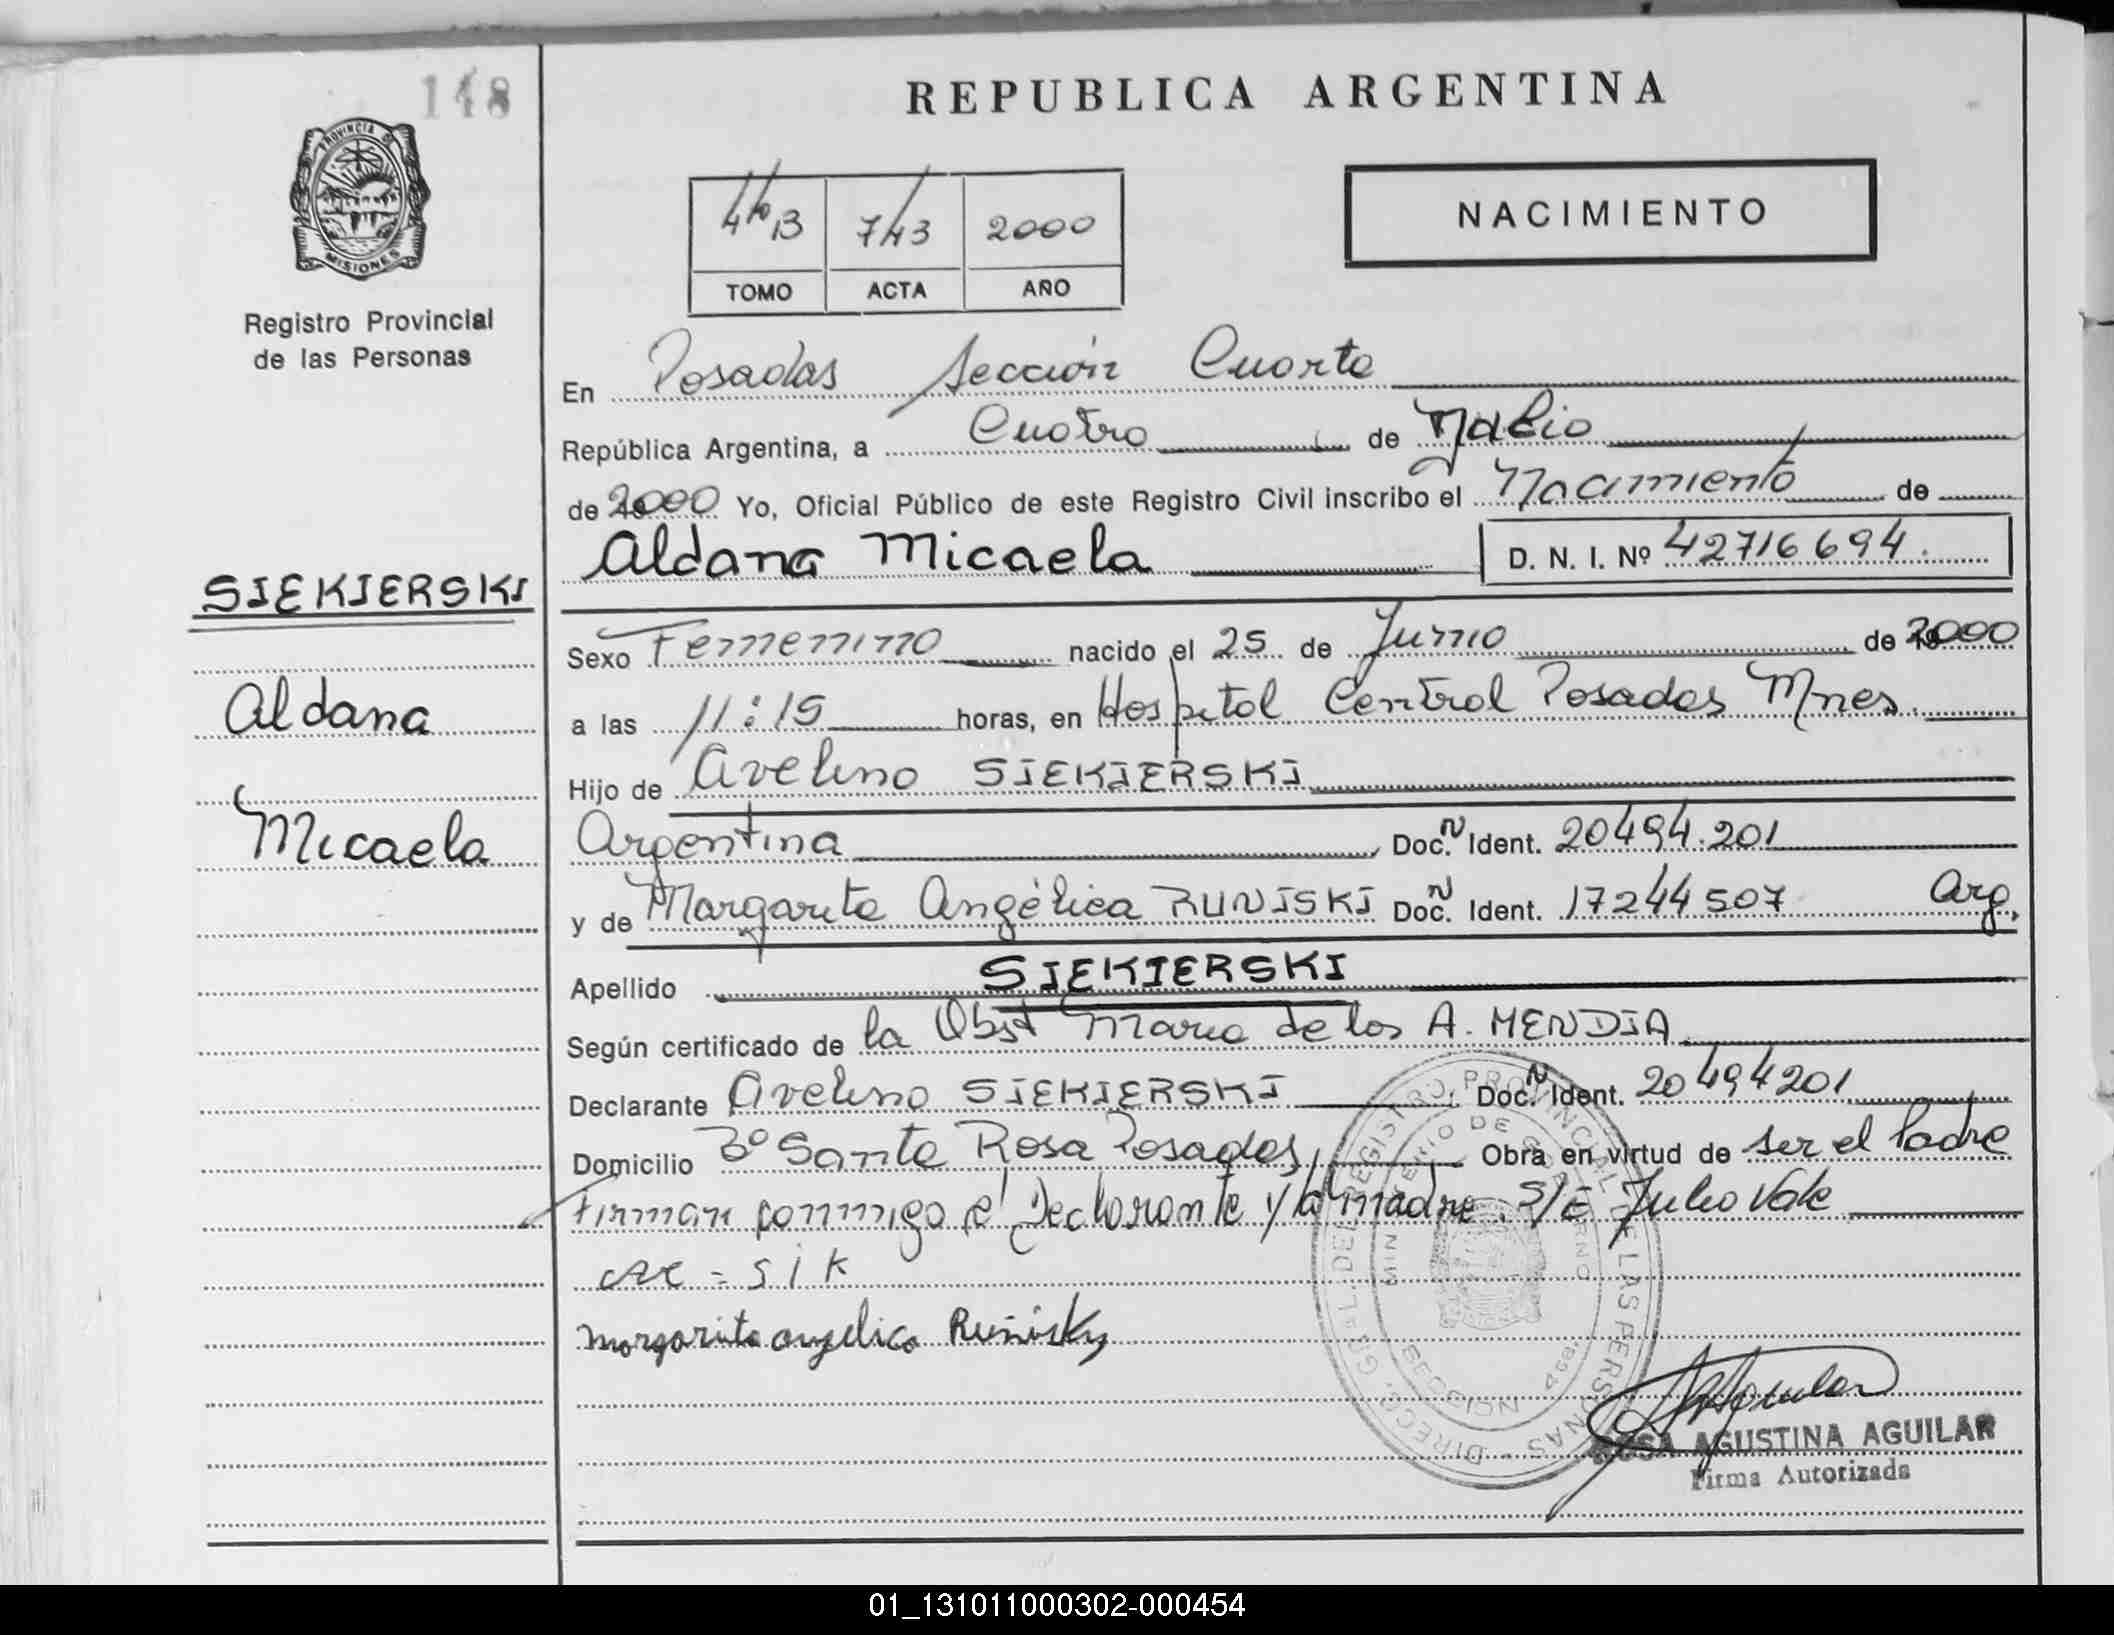 148
REPUBLICA ARGENTINA
PROVINCIA DE
MISIONES
Registro Provincial
de las Personas
4to B 743 2000
TOMO ACTA AÑO
NACIMIENTO
En Posadas Sección Cuarta
República Argentina, a Cuatro de Julio
de 2000 Yo, Oficial Público de este Registro Civil inscribo el Nacimiento de
Aldana Micaela D. N. I. Nº 42716694.
SIEKIERSKI
Aldana
Micaela
Sexo Femenino nacido el 25 de Junio de 2000
a las 11:15 horas, en Hospital Central Posadas Mnes.
Hijo de Avelino SIEKIERSKI
Argentina Doc. N Ident. 20494.201
y de Margarita Angélica RUNISKI Doc. N Ident. 17244507 Arg.
Apellido SIEKIERSKI
Según certificado de la Obst Maria de los A. MENDIA
Declarante Avelino SIEKIERSKI Doc. N Ident. 20494201
Domicilio Bº Santa Rosa Posadas, Obra en virtud de ser el Padre
Firman conmigo el Declarante y la madre. S/E Julio Vale
Margarita angelica Runisky
DIRECC. GRAL. DEL REGISTRO PROVINCIAL DE LAS PERSONAS
MINISTERIO DE GOBIERNO
SECCION 4ta.
ROSA AGUSTINA AGUILAR
Firma Autorizada
01_131011000302-000454